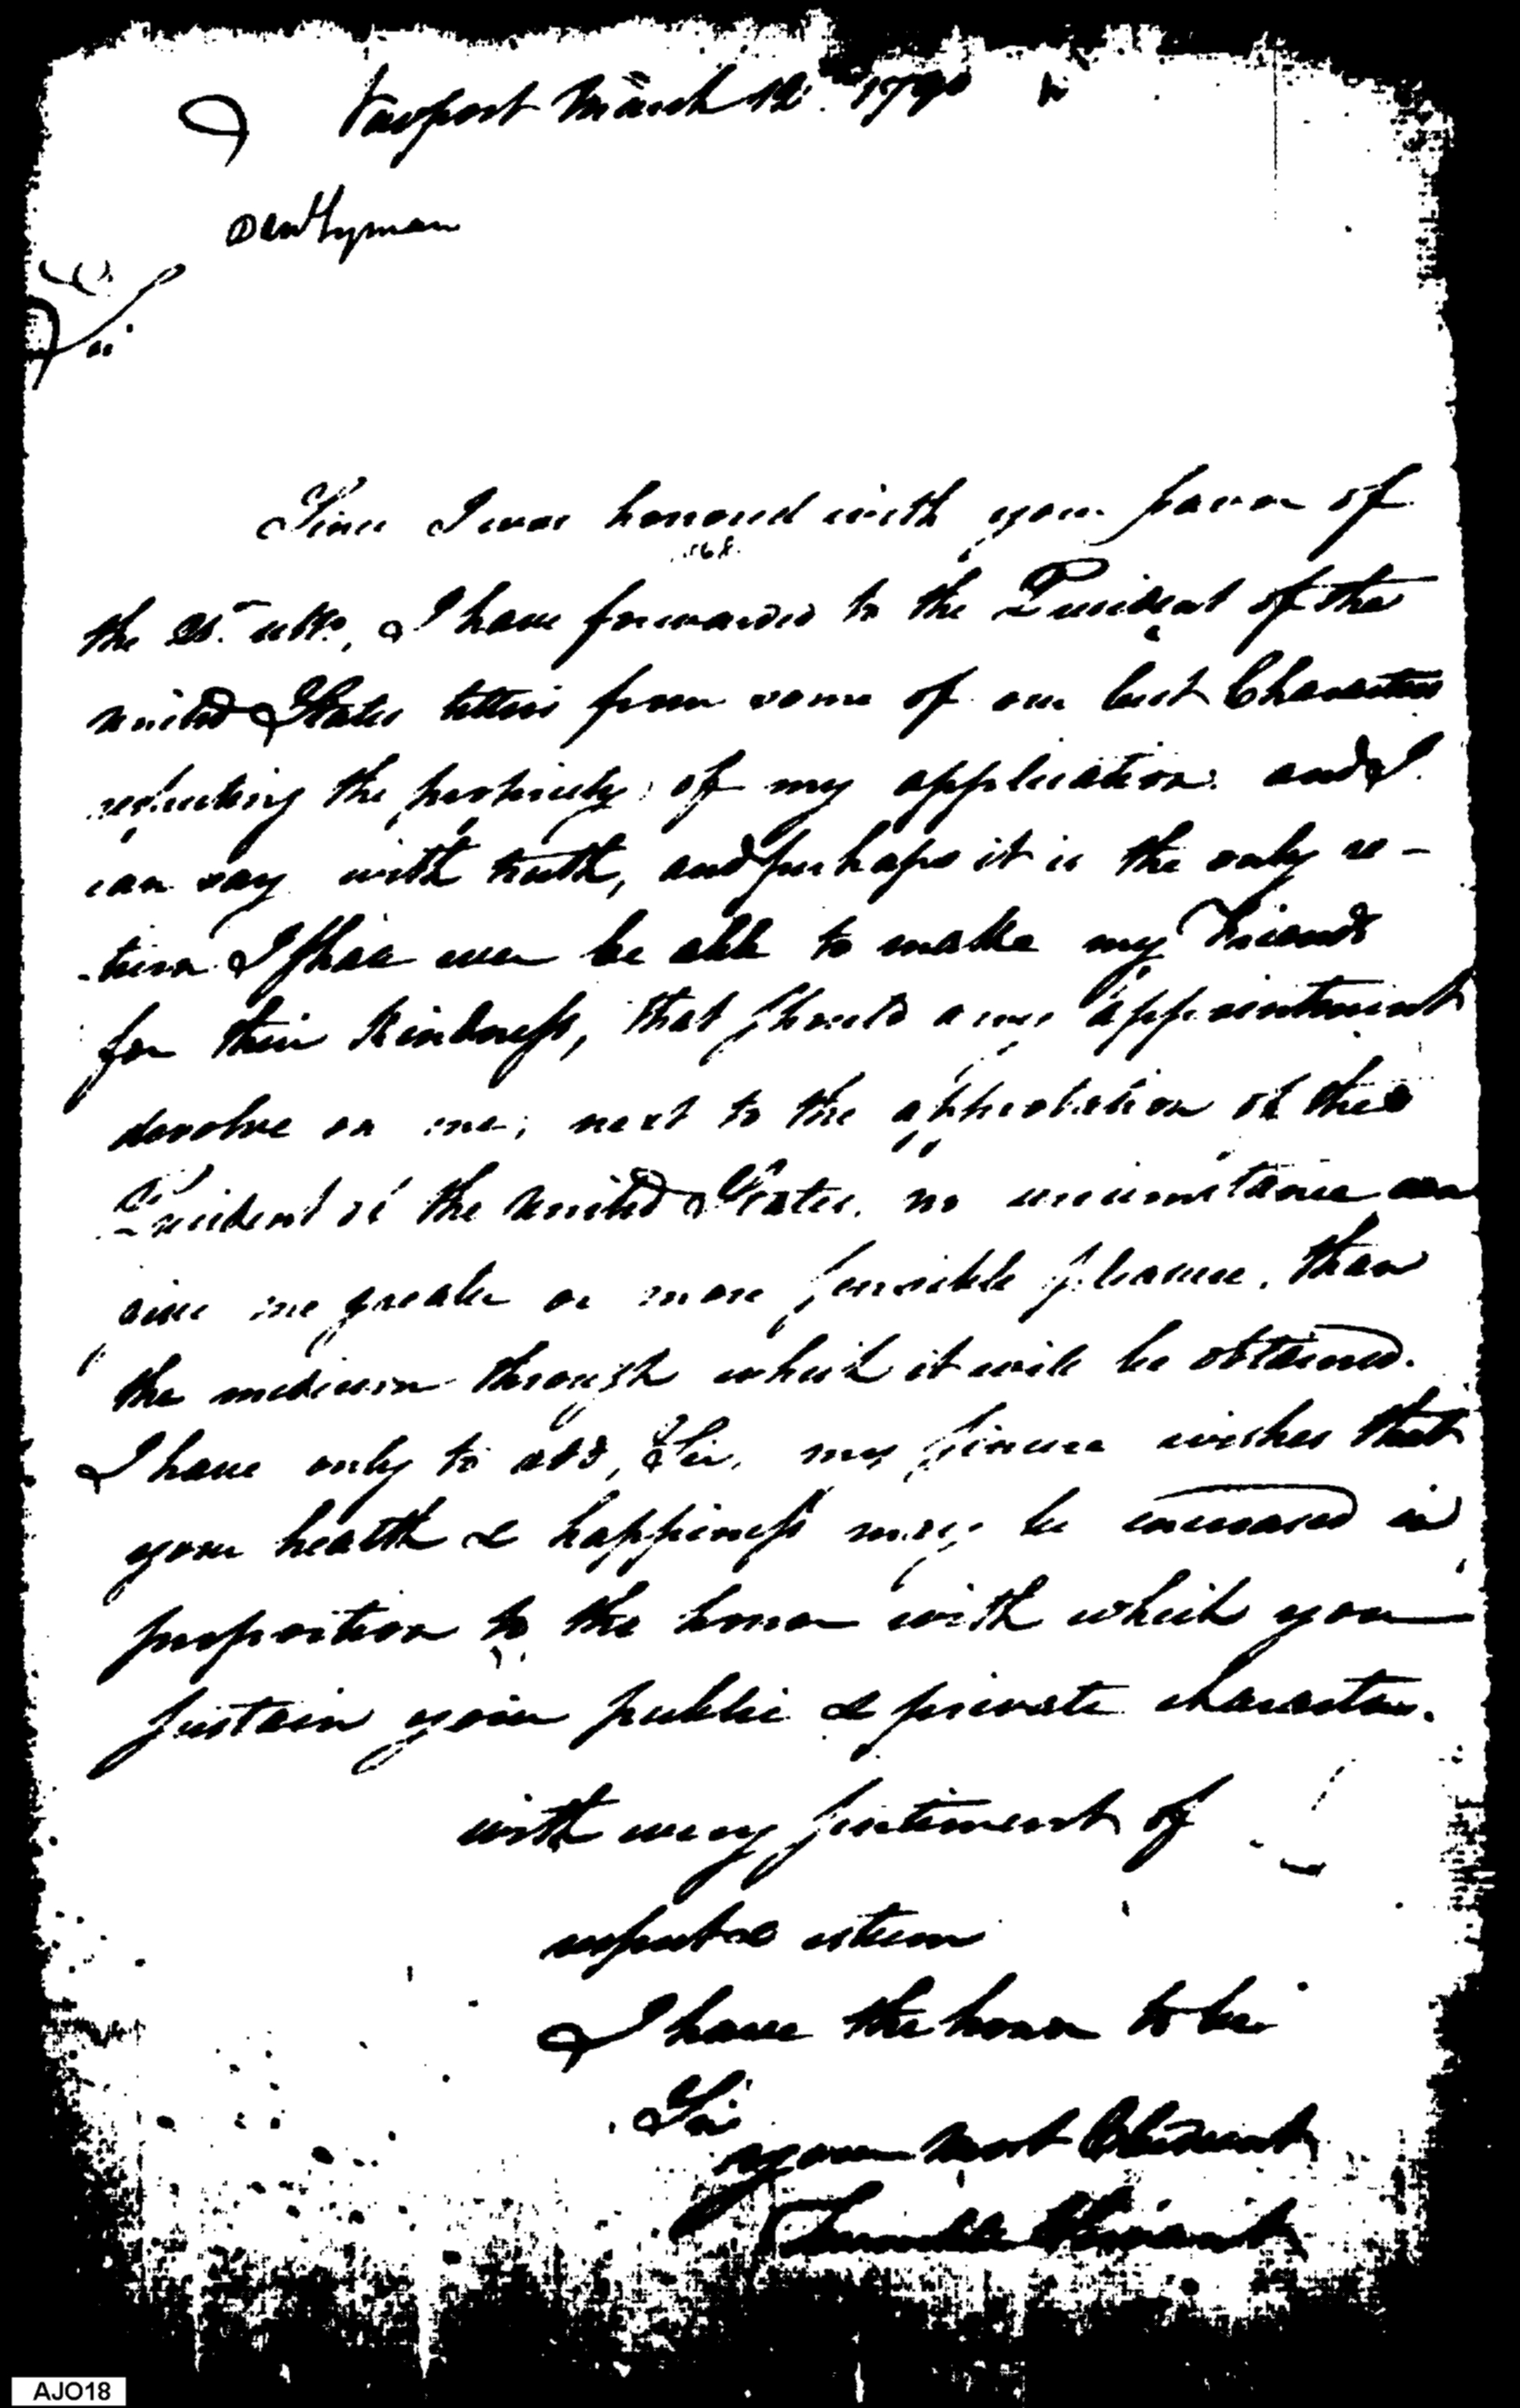 Newport March 12th 1790
Dan Lyman
Sir
Since I was honored with your favor of
the ulto, I have forwarded to the President of the
United States letters from some of our best Characters
respecting the propriety of my application. and I
can say with truth, and perhaps it is the only re-
-turn I shall ever be able to make my Friends
for their kindness, that should an appointment
devolve on me; next to the approbation of the
President of the United States. no circumstance can
give me greater or more sensible pleasure, than
the medium through which it will be obtained.
I have only to add, Sir, my sincere wishes that
your health & happiness may be increased in
proportion to the honor with which you
sustain your public & private character.
with every sentiment of
respect & esteem
I have the honor to be
Sir
your most Obedient
humble Servant
AJO18